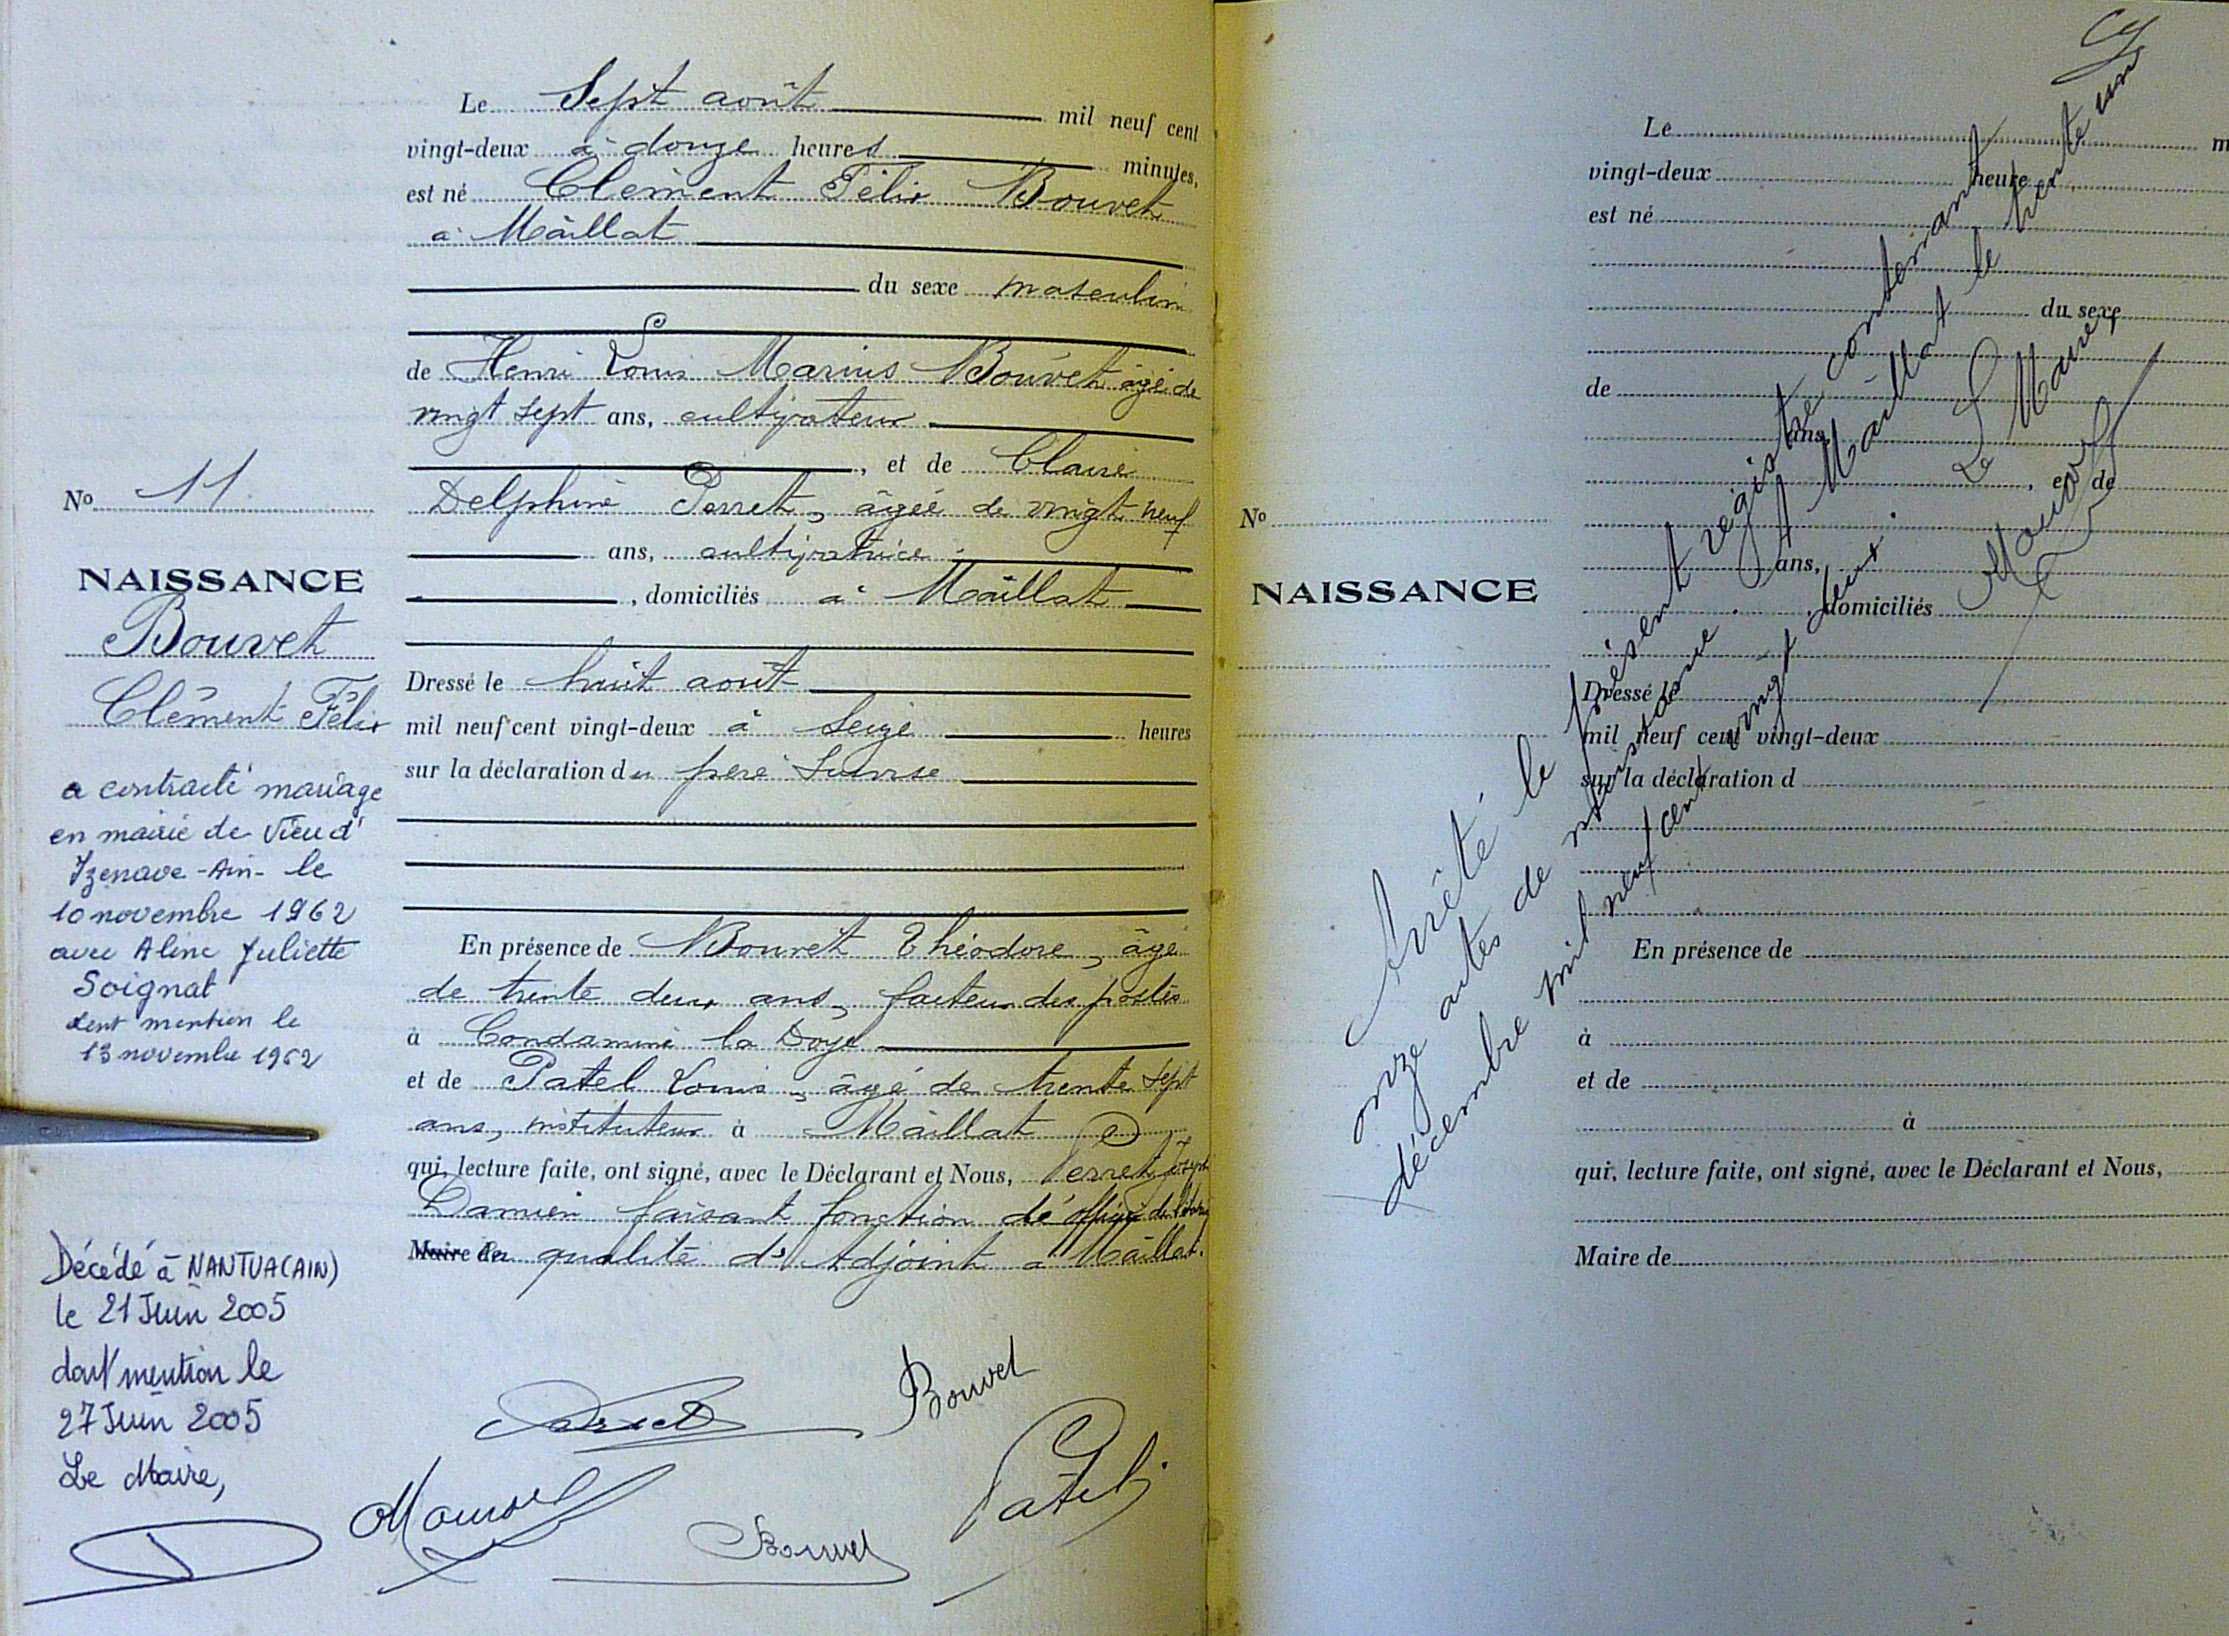 Le Sept août mil neuf cent
vingt-deux à douze heures minutes,
est né Clément Félix Bouvet
à Maillat
du sexe masculin
de Henri Louis Marius Bouvet âgé de
vingt sept ans, cultivateur
, et de Claire
Delphine Perret, âgée de vingt neuf
ans, cultivatrice
, domiciliés à Maillat
Dressé le huit août
mil neuf cent vingt-deux à seize heures
sur la déclaration du père
En présence de Bouvet Théodore, âgé
de trente deux ans, facteur des postes
à Condamine la Doye
et de Patel Louis, âgé de trente sept
ans, instituteur à Maillat
qui, lecture faite, ont signé, avec le Déclarant et Nous, Perret Joseph
Damien faisant fonction d'officier de l'état
Maire de en qualité d'Adjoint à Maillat.
Perret
Bouvet
Patel
Bouvet
No 11
NAISSANCE
Bouvet
Clément Félix
a contracté mariage
en mairie de Vieu d'
Izenave - Ain - le
10 novembre 1962
avec Aline Juliette
Soignat
dont mention le
13 novembre 1962
Décédé à NANTUA (AIN)
le 21 Juin 2005
dont mention le
27 Juin 2005
Le Maire,
No
NAISSANCE
Le m
vingt-deux heure
est né
du sexe
de
ans,
, et de
ans,
, domiciliés
Dressé le
mil neuf cent vingt-deux
sur la déclaration d
En présence de
à
et de
à
qui, lecture faite, ont signé, avec le Déclarant et Nous,
Maire de
Arrêté le présent registre contenant
onze actes de naissance. à Maillat le trente un
décembre mil neuf cent vingt deux.
Le Maire